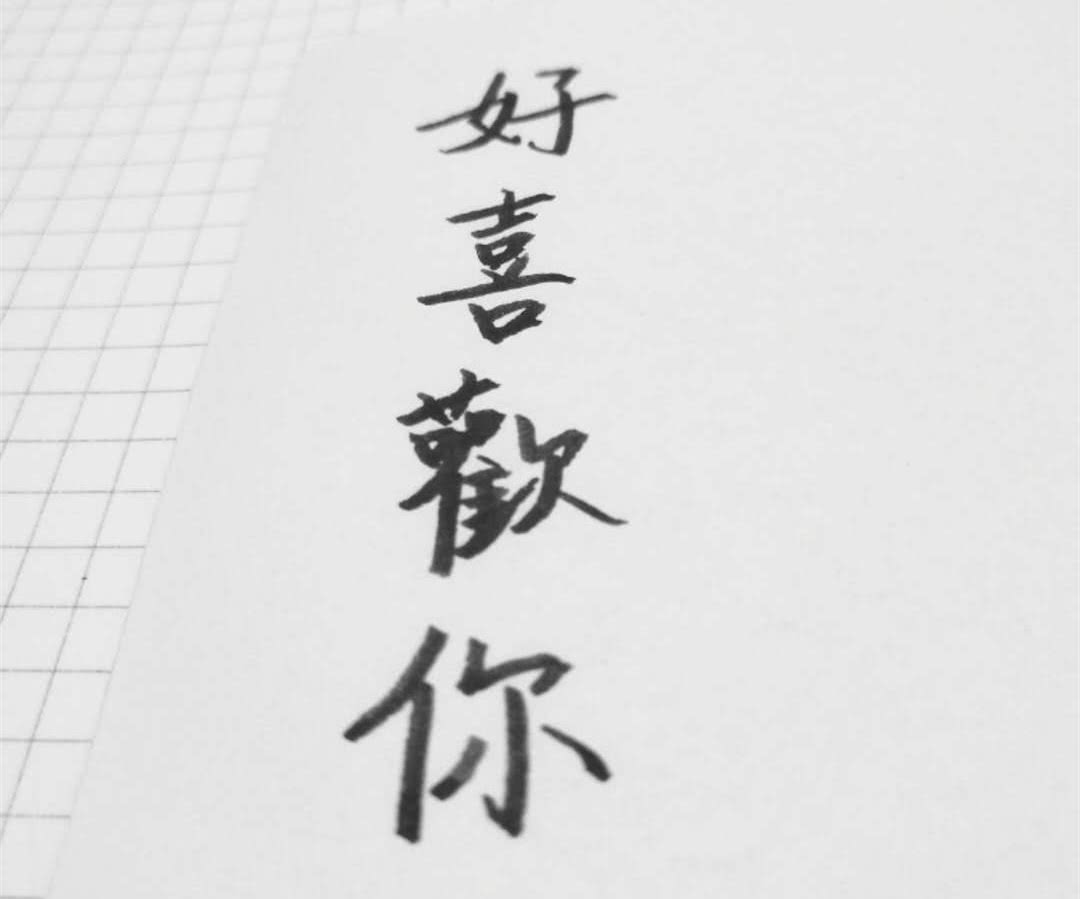 好喜歡你